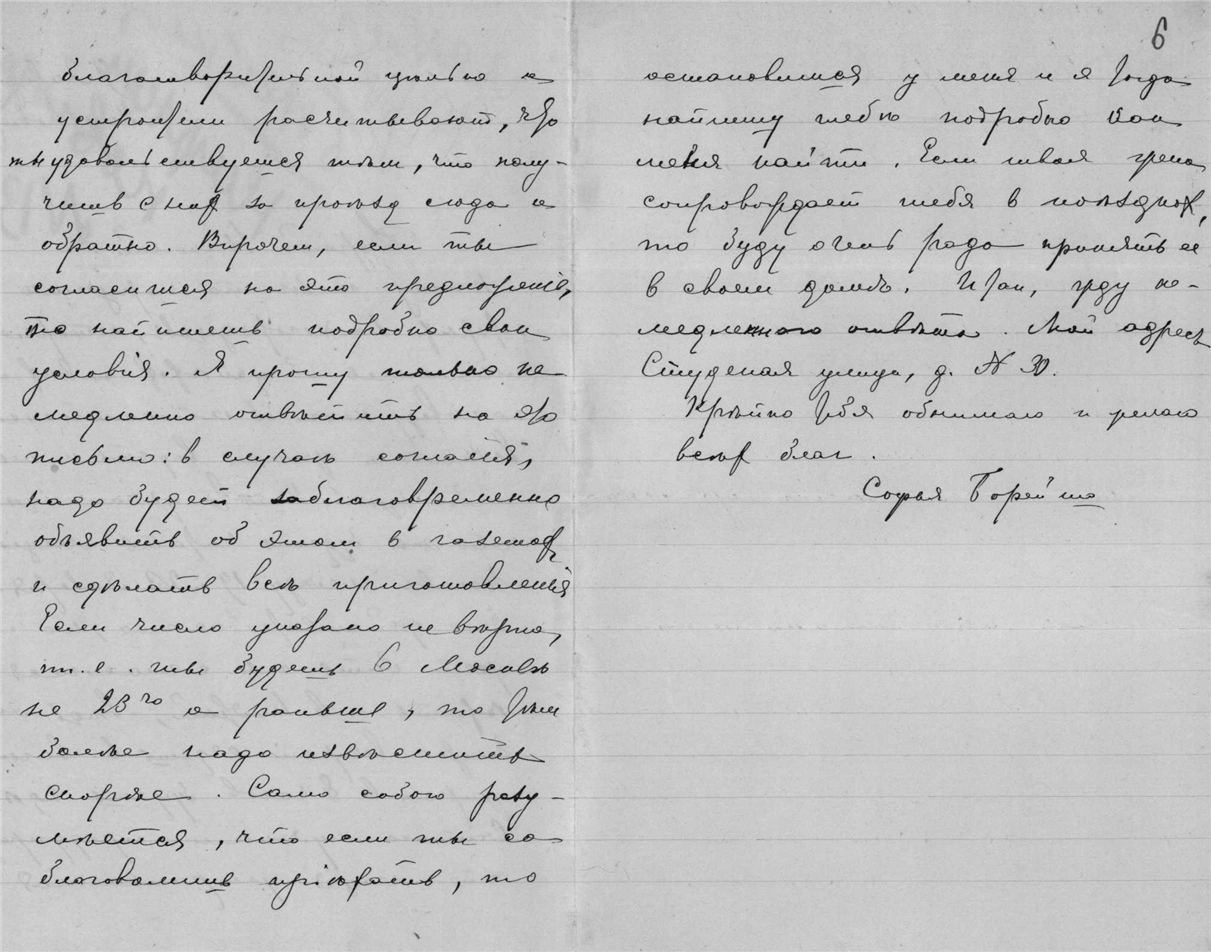 благотворительной цѣлью а
устроители расчитывают, что
ты удовольствуешся тѣм, что полу-
чишь с них за проѣзд сюда и
обратно. Впрочем, если ты
согласишся на это предложеніе,
то напишешь подробно свои
условія. Я прошу только не-
медленно отвѣтить на это
письмо: в случаѣ согласія,
надо будет заблаговременно
объявить об этом в газетах
и сдѣлать всѣ приготовленія
Если число указано не вѣрно,
т. е. ты будешь в Москвѣ
не 23го а раньше, то тѣм
болѣе надо извѣстить
скорѣе. Само собою разу-
мѣется, что если ты со-
благоволишь пріѣхать, то
6
остановишся у меня и я тогда
напишу тебѣ подробно как
меня найти. Если твоя
сопровождает тебя в поѣздках,
то буду очень рада принять ее
в своем домѣ. Итак, жду не-
медленного отвѣта. Мой адрес
Студеная улица, д. № 30.
Крѣпко тебя обнимаю и желаю
всѣх благ.
Софья Борейша